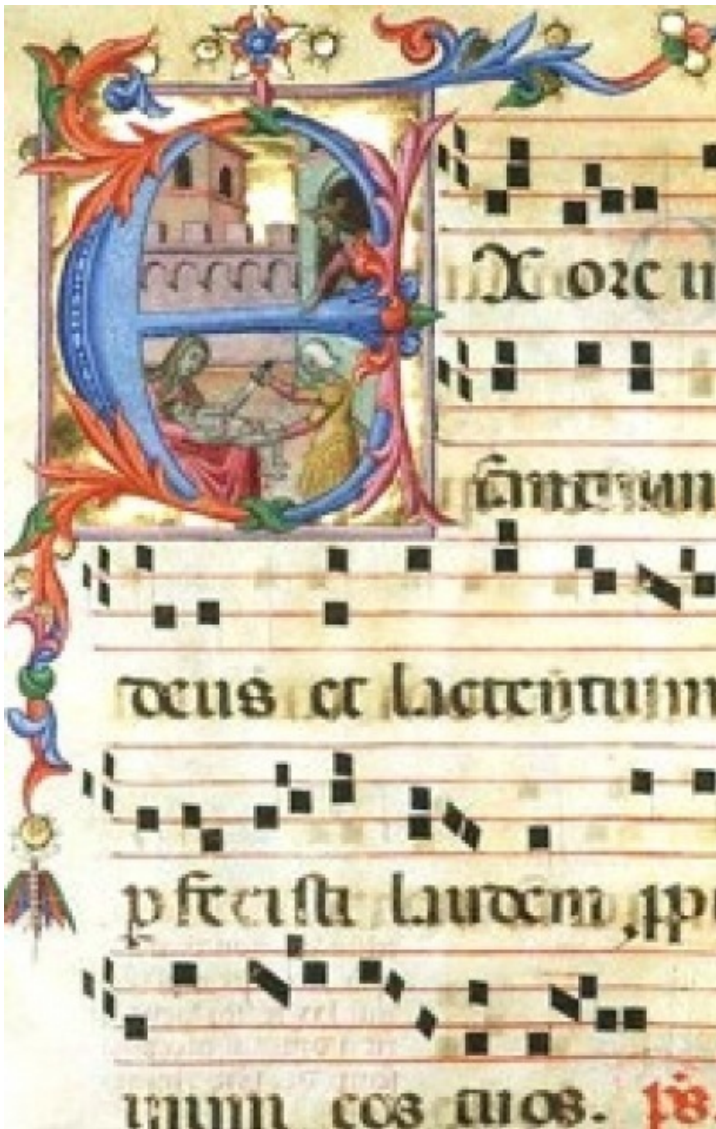 EX ore in
fantium
deus et lactentium
pfecisti laudem
inimi cos tuos. ps.